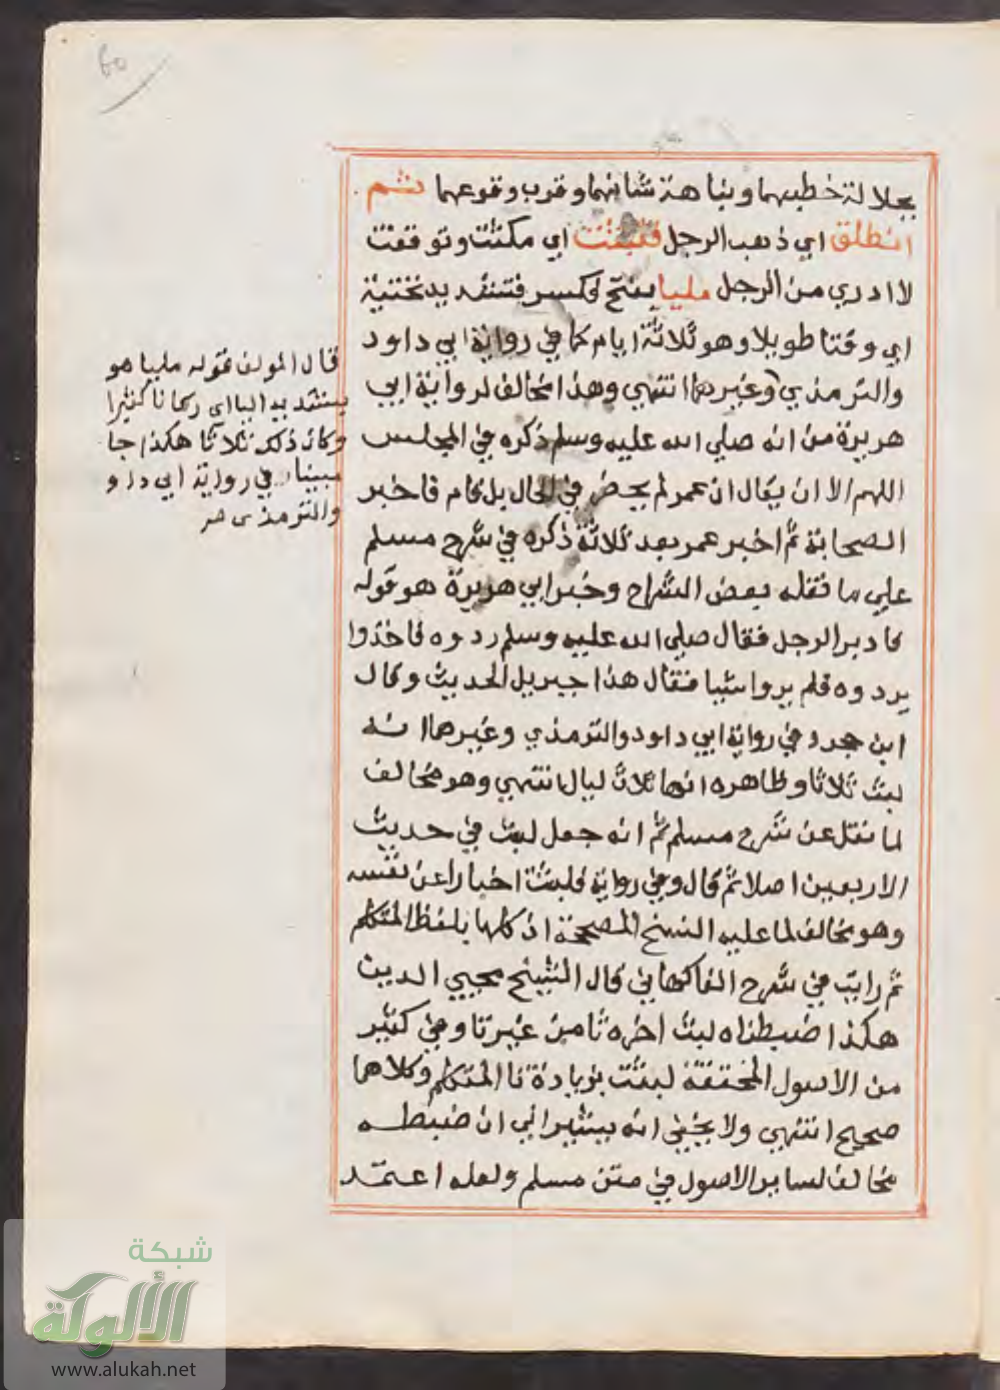 60
بجلالة خطبهما ونباهة شانهما وقرب وقوعهما ثم
انطلق اي ذهب الرجل فلبثت اي مكثت وتوقفت
لا ادري من الرجل مليا بفتح فكسر فتشديد تحتية
اي وقتا طويلا وهو ثلاثة ايام كما في رواية ابي داود
والترمذي وغيرهما انتهي وهذا مخالف لرواية ابي
هريرة من انه صلي الله عليه وسلم ذكره في المجلس
اللهم الا ان يقال ان عمر لم يحضر في الحال بل قام فاخبر
الصحابة ثم اخبر عمر بعد ثلاثة ذكره في شرح مسلم
علي ما نقله بعض الشراح وخبر ابي هريرة هو قوله
فادبر الرجل فقال صلي الله عليه وسلم ردوه فاخذوا
يردوه فلم يروا شيا فقال هذا جبريل الحديث وقال
ابن حجر وفي رواية ابي داود والترمذي وغيرهما انه
لبث ثلاثا وظاهره انها ثلاث ليال انتهي وهو مخالف
لما نقل عن شرح مسلم ثم انه جعل لبث في حديث
الاربعين اصلا ثم قال وفي رواية فلبثت اخبارا عن نفسه
وهو مخالف لما عليه النسخ المصححة اذ كلها بلفظ المتكلم
ثم رايت في شرح الفاكهاني قال الشيخ محيي الدين
هكذا ضبطناه لبث اخره ثا من غير تا وفي كثير
من الاصول المحققة لبثت بزيادة تا المتكلم وكلاهما
صحيح انتهي ولا يخفي انه يشير الي ان ضبطه
مخالف لساير الاصول في متن مسلم ولعله اعتمد
قال المولف قوله مليا هو
بتشديد اليا اي زمانا كثيرا
وكان ذلك ثلاثا هكذا جا
مبينا في رواية ابي داو
والترمذي
شبكة
الألوكة
www.alukah.net